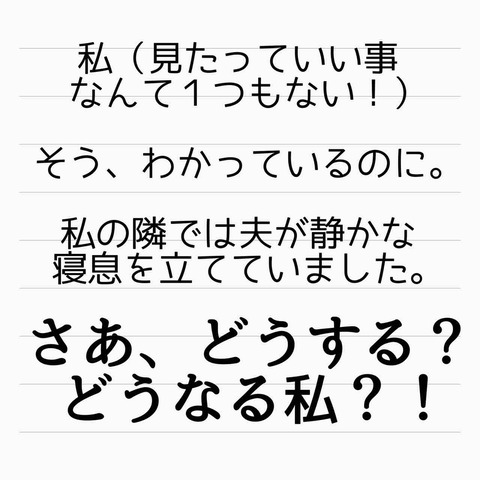 私（見たっていい事
なんて１つもない！）
そう、わかっているのに。
私の隣では夫が静かな
寝息を立てていました。
さあ、どうする？
どうなる私？！